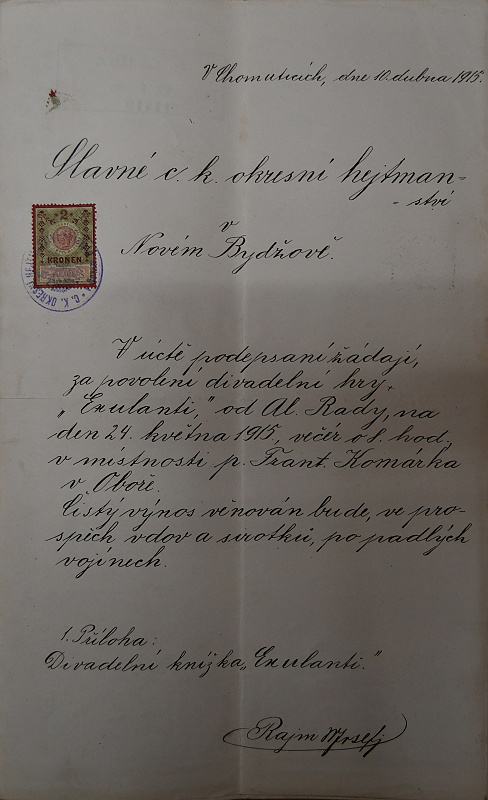 V Chomuticích, dne 10. dubna 1915.
Slavné c. k. okresní hejtman-
- ství
v
Novém Bydžově.
2
KRONEN
C. K. OKRESNÍ HEJT
V úctě podepsaní žádají,
za povolení divadelní hry,
„Exulanti," od Al. Rady, na
den 24. května 1915, večér o 8. hod.,
v místnosti p. Frant. Komárka
v Oboře.
Čistý výnos věnován bude, ve pro-
spěch vdov a sirotků, po padlých
vojínech.
1. Příloha:
Divadelní knížka „Exulanti."
Josef